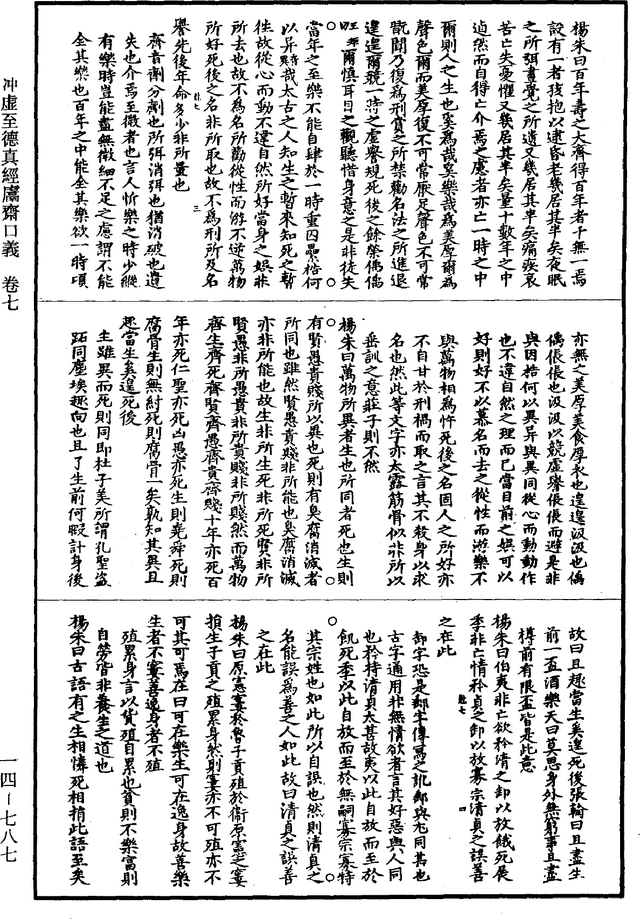 楊朱曰百年壽之大齊得百年者千無一焉
設有一者孩抱以逮昏老幾居其半矣夜眠
之所弭晝覺之所遺又幾居其半矣痛疾哀
苦亡失憂懼又幾居其半矣量十數年之中
逌然而自得亡介焉之慮者亦亡一時之中
爾則人之生也奚為哉奚樂哉為美厚爾為
聲色爾而美厚復不可常厭足聲色不可常
翫聞乃復為刑賞之所禁勸名法之所進退
遑遑爾競一時之虛譽規死後之餘榮偊偊
爾慎耳目之觀聽惜身意之是非徒失
當年之至樂不能自肆於一時重囚纍梏何
以異哉太古之人知生之暫來知死之暫
往故從心而動不違自然所好當身之娛非
所去也故不為名所勸從性而游不逆萬物
所好死後之名非所取也故不為刑所及名
譽先後年命多少非所量也
齊音劑分劑也所弭消弭也猶消破也遺
失也介焉至微者也言人忻樂之時少縱
有樂時豈能盡無微細不足之慮謂不能
全其樂也百年之中能全其樂欲一時頃
亦無之美厚美食厚衣也遑遑汲汲也偊
偊倀倀也汲汲以競虛譽倀倀而避是非
與囚梏何以異異與異同從心而動動作
也不違自然之理而已當目前之娛可以
好則好不以慕名而去之從性而游樂不
與萬物相為忤死後之名固人之所好亦
不自甘於刑禍而取之言其不殺身以求
名也然此等文字亦太露筋骨似非所以
垂訓之意莊子則不然
楊朱曰萬物所異者生也所同者死也生則
有賢愚貴賤所以異也死則有臭腐消滅者
所同也雖然賢愚貴賤非所能也臭腐消滅
亦非所能也故生非所生死非所死賢非所
賢愚非所愚貴非所貴賤非所賤然而萬物
齊生齊死齊賢齊愚齊貴齊賤十年亦死百
年亦死仁聖亦死凶愚亦死生則堯舜死則
腐骨生則桀紂死則腐骨一矣孰知其異且
趣當生奚遑死後
生雖異而死則同即杜子美所謂孔聖盜
跖同塵埃趣向也且了生前何暇計身後
故曰且趣當生奚遑死後張翰曰且盡生
前一盃酒樂天曰莫思身外無窮事且盡
樽前有限盃皆是此意
楊朱曰伯夷非亡欲矜清之卸以放餓死展
季非亡情矜貞之卸以放寡宗清貞之誤善
之在此
卸字恐是卹字傳寫之訛卹與尤同其也
古字通用非無情欲者言其好惡與人同
也矜持清貞太甚故夷以此自放而至於
飢死季以此自放而至於無嗣寡宗寡特
其宗姓也如此所以自誤也然則清貞之
名能誤為善之人如此故曰清貞之誤善
之在此
楊朱曰原憲窶於魯子貢殖於衛原憲之窶
損生子貢之殖累身然則窶亦不可殖亦不
可其可焉在曰可在樂生可在逸身故善樂
生者不窶善逸身者不殖
殖累身言以貨殖自累也貧則不樂富則
自勞皆非養生之道也
楊朱曰古語有之生相憐死相捐此語至矣
冲虛至德真經鬳齋口義　卷七
一四－七八七